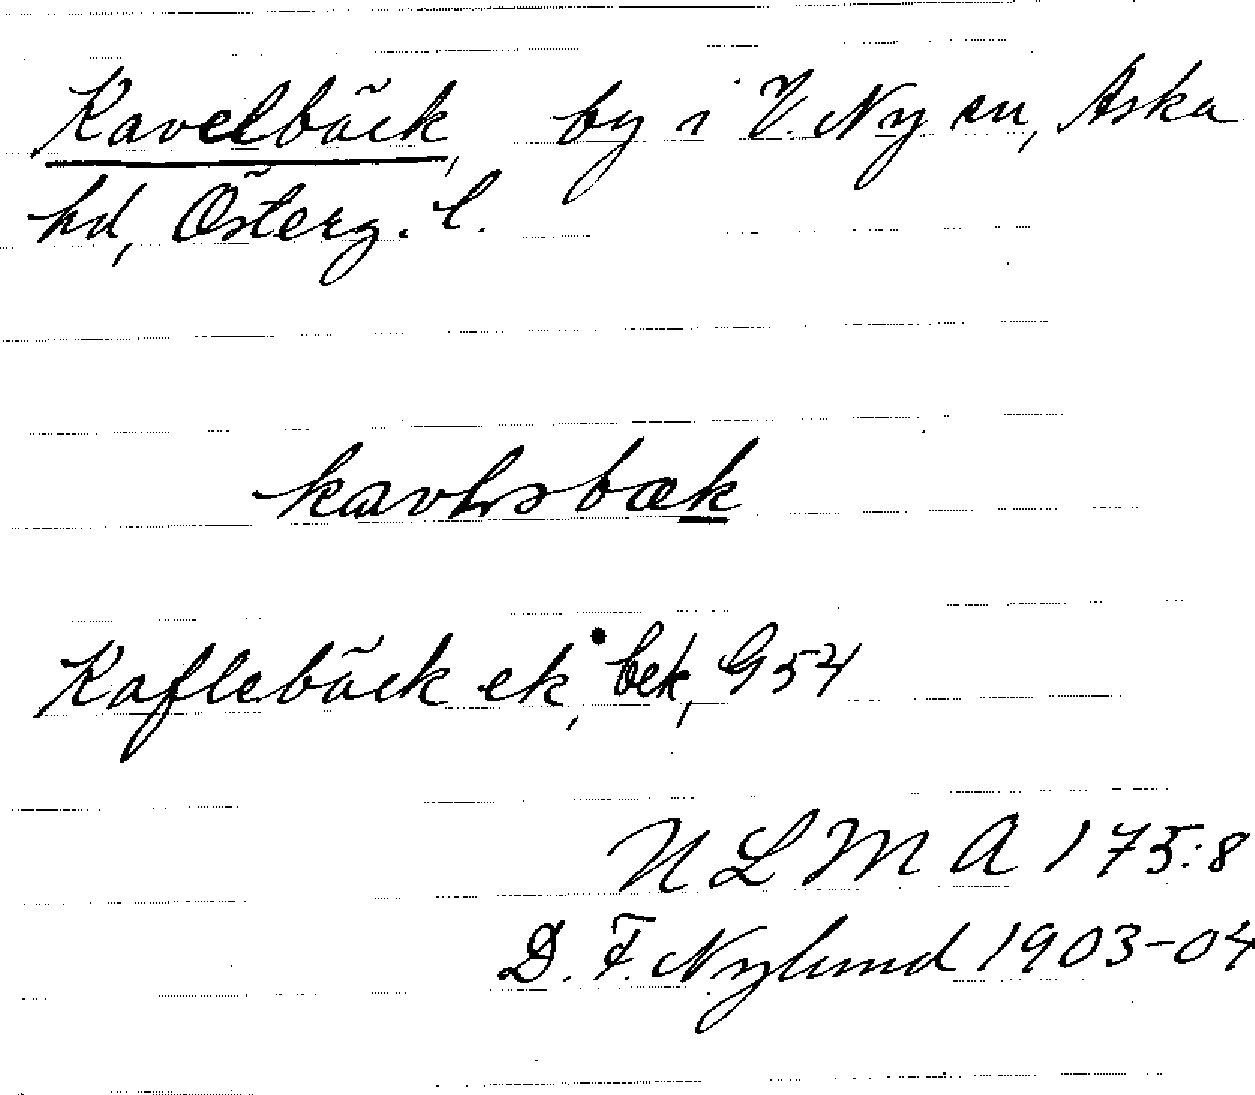 Kavelbäck, by i V. Ny sn, Aska
hd, Österg. l.
Kaflebäck ek, bek, G 54
ULMA 175:8
D. F. Nylund 1903-04